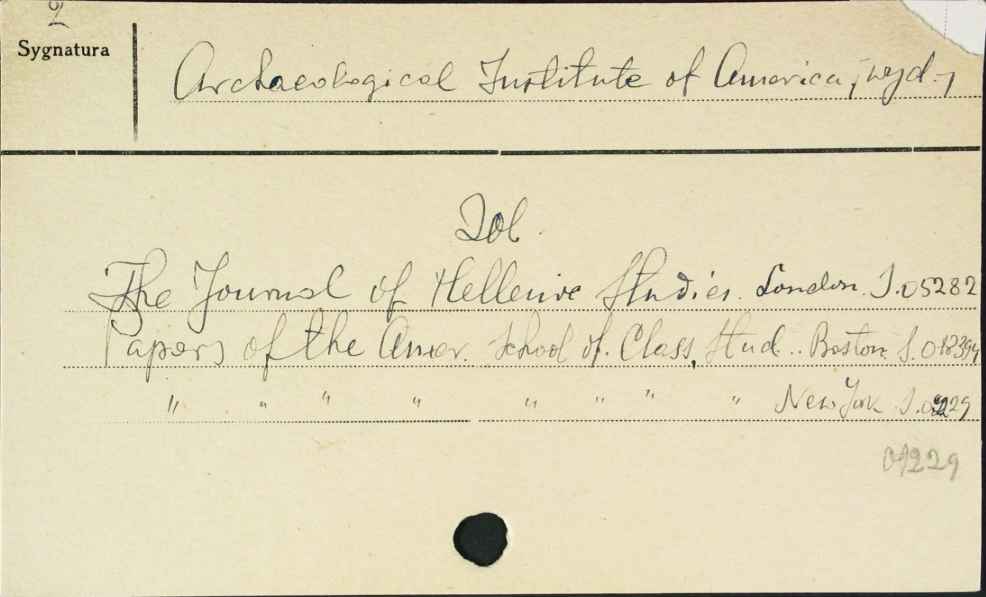 2
Sygnatura
Archaeological Institute of America, wyd.,
Zob.
The Journal of Hellenic Studies. London. J.05282
Papers of the Amer. School of. Class. Stud.. Boston J.018394
" " " " " " " " New York J.
01229